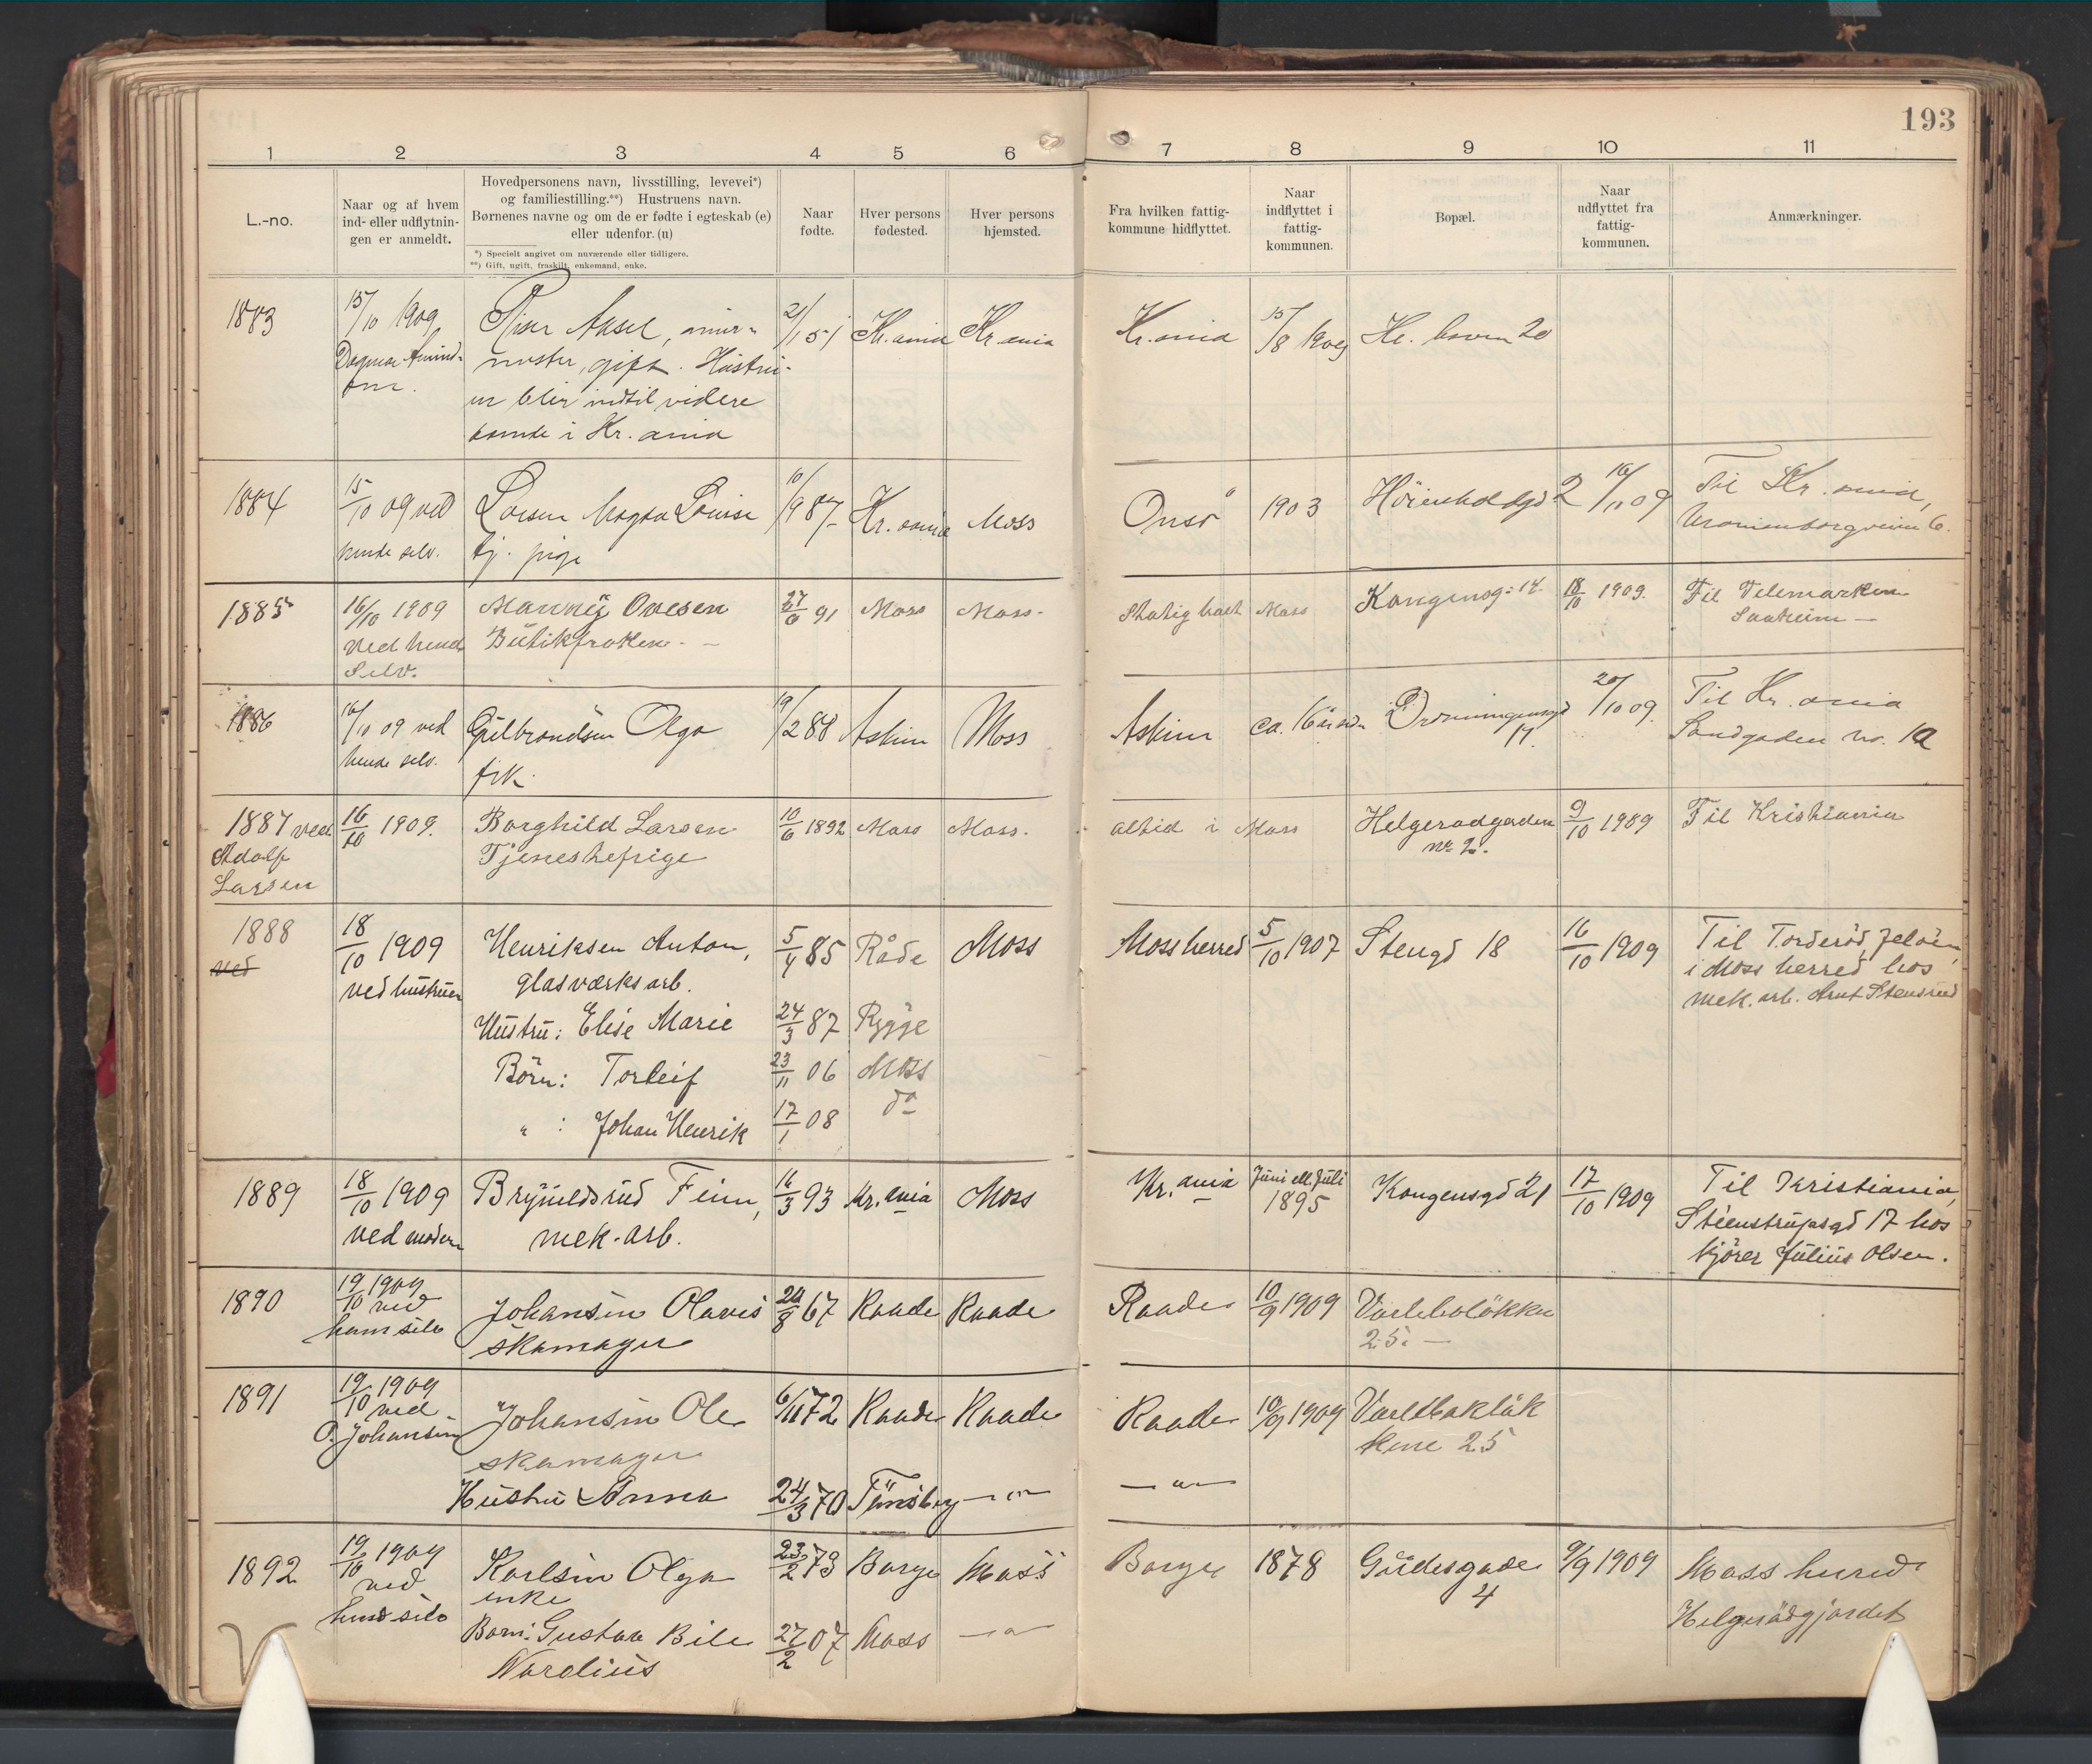 193
1 2 3 4 5 6 7 8 9 10 11
L.-no.
Naar og af hvem
ind- eller udflytnin-
gen er anmeldt.
Hovedpersonens navn, livsstilling, levevei*)
og familiestilling.**) Hustruens navn.
Børnenes navne og om de er fødte i egteskab (e)
eller udenfor. (u)
*) Specielt angivet om nuværende eller tidligere.
**) Gift, ugift, fraskilt, enkemand, enke.
Naar
fødte.
Hver persons
fødested.
Hver persons
hjemsted.
Fra hvilken fattig-
kommune hidflyttet.
Naar
indflyttet i
fattig-
kommunen.
Bopæl.
Naar
udflyttet fra
fattig-
kommunen.
Anmærkninger.
1883
15/10 1909
Dagmar
Aksel, mur-
mester, gift. Hustru-
en blir indtil videre
boende i Kr.ania
21/1 51 Kr.ania Kr.ania
Kr.ania 15/8 1909 20
1884
15/10 09 ved
hende selv.
Magda Louise
tj. pige
10/9 87 Kr.ania Moss
Onsø 1903 Høienhaldgd 2 16/11 09
Til Kr.ania,
Uranienborgveien 6.
1885
16/10 1909
ved hende
selv.
Ovesen
Butikfrøken
27/6 91 Moss Moss
Stadig havt Moss Kongensg: 14. 18/10 1909.
Til Telemarken
Saaheim
1886
16/10 09 ved
hende selv.
Gulbrandsen Olga
frk.
19/2 88 Askim Moss
Askim ca. 16 år siden Dronningensgd
17.
20/10 09.
Til Kr.ania
Sandgaden no. 10
1887 ved
Adolf
Larsen
16/10 1909.
Borghild Larsen
Tjenestepige
10/6 1892 Moss Moss.
altid i Moss Helgerødgaden
nr 2.
9/10 1909 Til Kristiania
1888
ved
18/10 1909
ved hustruen
Henriksen Anton,
glasværksarb.
5/4 85 Råde Moss
Hustru: Elise Marie 24/3 87 Rygge
Börn: Torleif 23/11 06 Moss
" : Johan Henrik 17/1 08 do
Moss herred 5/10 1907 Stengd 18 16/10 1909
Til Torderöd, Jelöen
i Moss herred hos
mek. arb. Arnt Stensrud
1889
18/10 1909
ved moderen
Brynildsrud Finn,
mek. arb.
16/3 93 Kr.ania Moss
Kr.ania Juni ell. Juli
1895
Kongensgd 21 17/10 1909
Til Kristiania,
Steenstrupsgd 17 hos
kjører Julius Olsen.
1890
19/10 1909
ved
ham selv
Johansen Olavis
skomager
24/8 67 Raade Raade
Raade 10/9 1909 Varlebolökken
25.
1891
19/10 1909
ved
O. Johansen
Johansen Ole
skomager
6/11 72 Raade Raade
Hustru Anna 24/3 70 Tönsberg — " —
Raade 10/9 1909
25
— " —
1892
19/10 1909
ved
hende selv
Karlsen Olga
enke
23/2 73 Borge Moss
Barn: Gustav
27/2 07 Moss — " —
Borge 1878 Gudesgade
4
9/9 1909 Moss herred
Helgerödgjordet